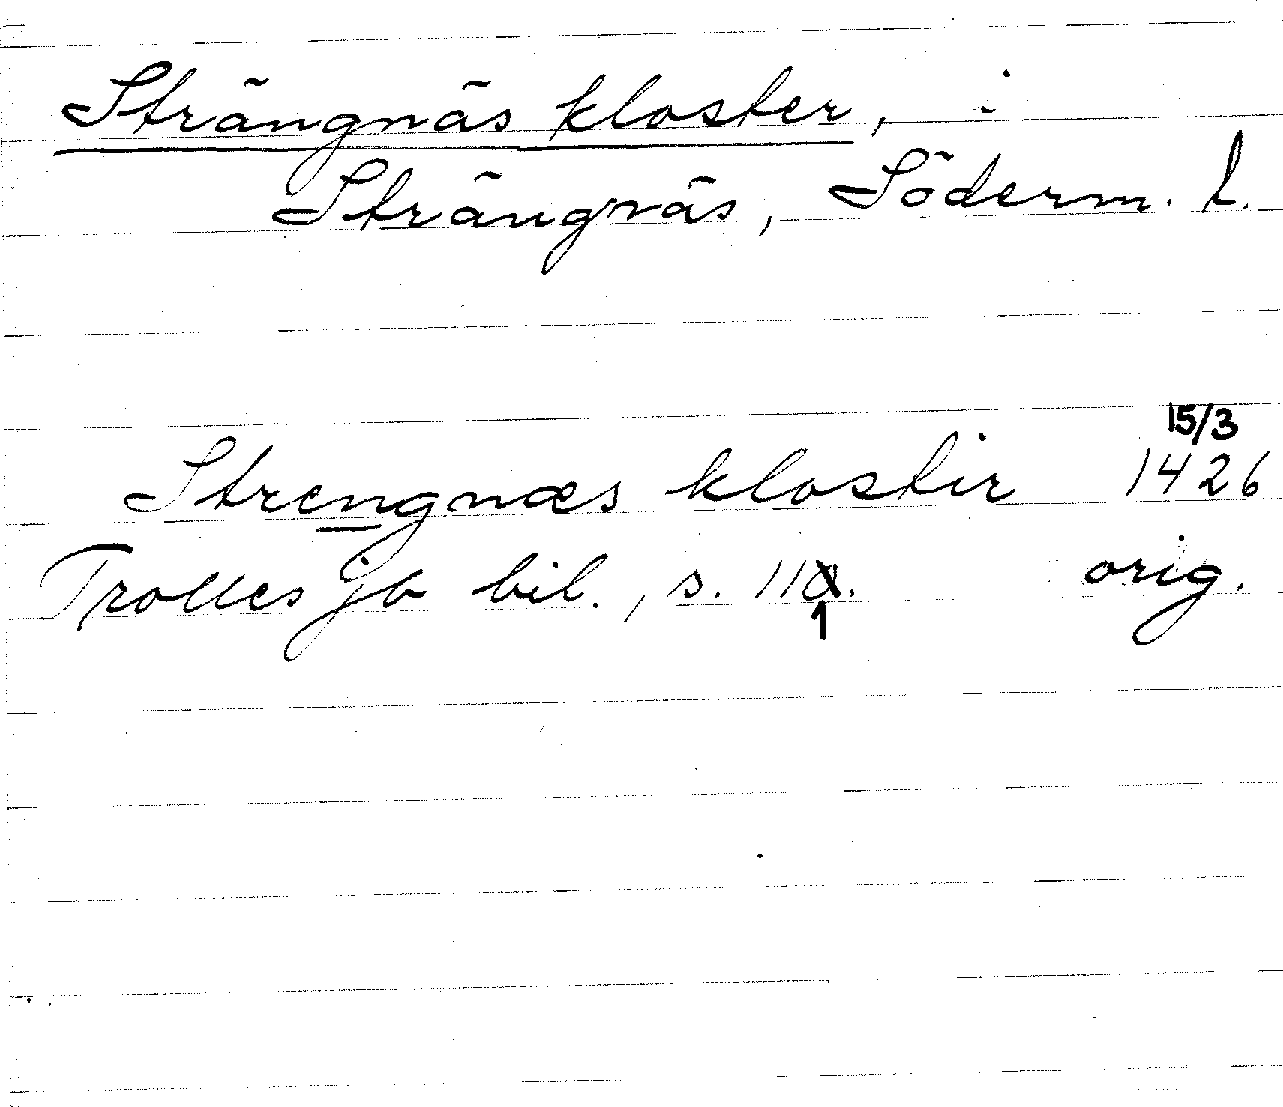 Strängnäs kloster, i
Strängnäs, Söderm. l.
15/3
Strengnæs klostir 1426
Trolles jb bil., s. 111. orig.